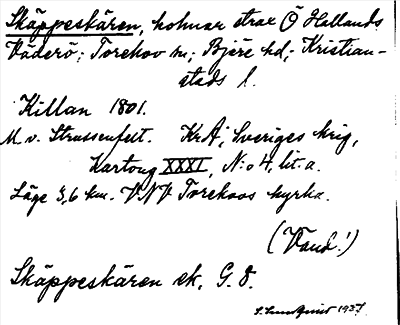 Skäppeskären, holmar strax Ö Hallands
Väderö; Torekov sn; Bjäre hd; Kristian-
stads l.
Killan 1801.
M. v. Strussenfelt. KrA; Sveriges krig,
Kartong XXXI, N:o 4, lit. a.
Läge 3,6 km. VNV Torekovs kyrka.
(Vänd!)
Skäppeskären ek. G. 8.
1937.